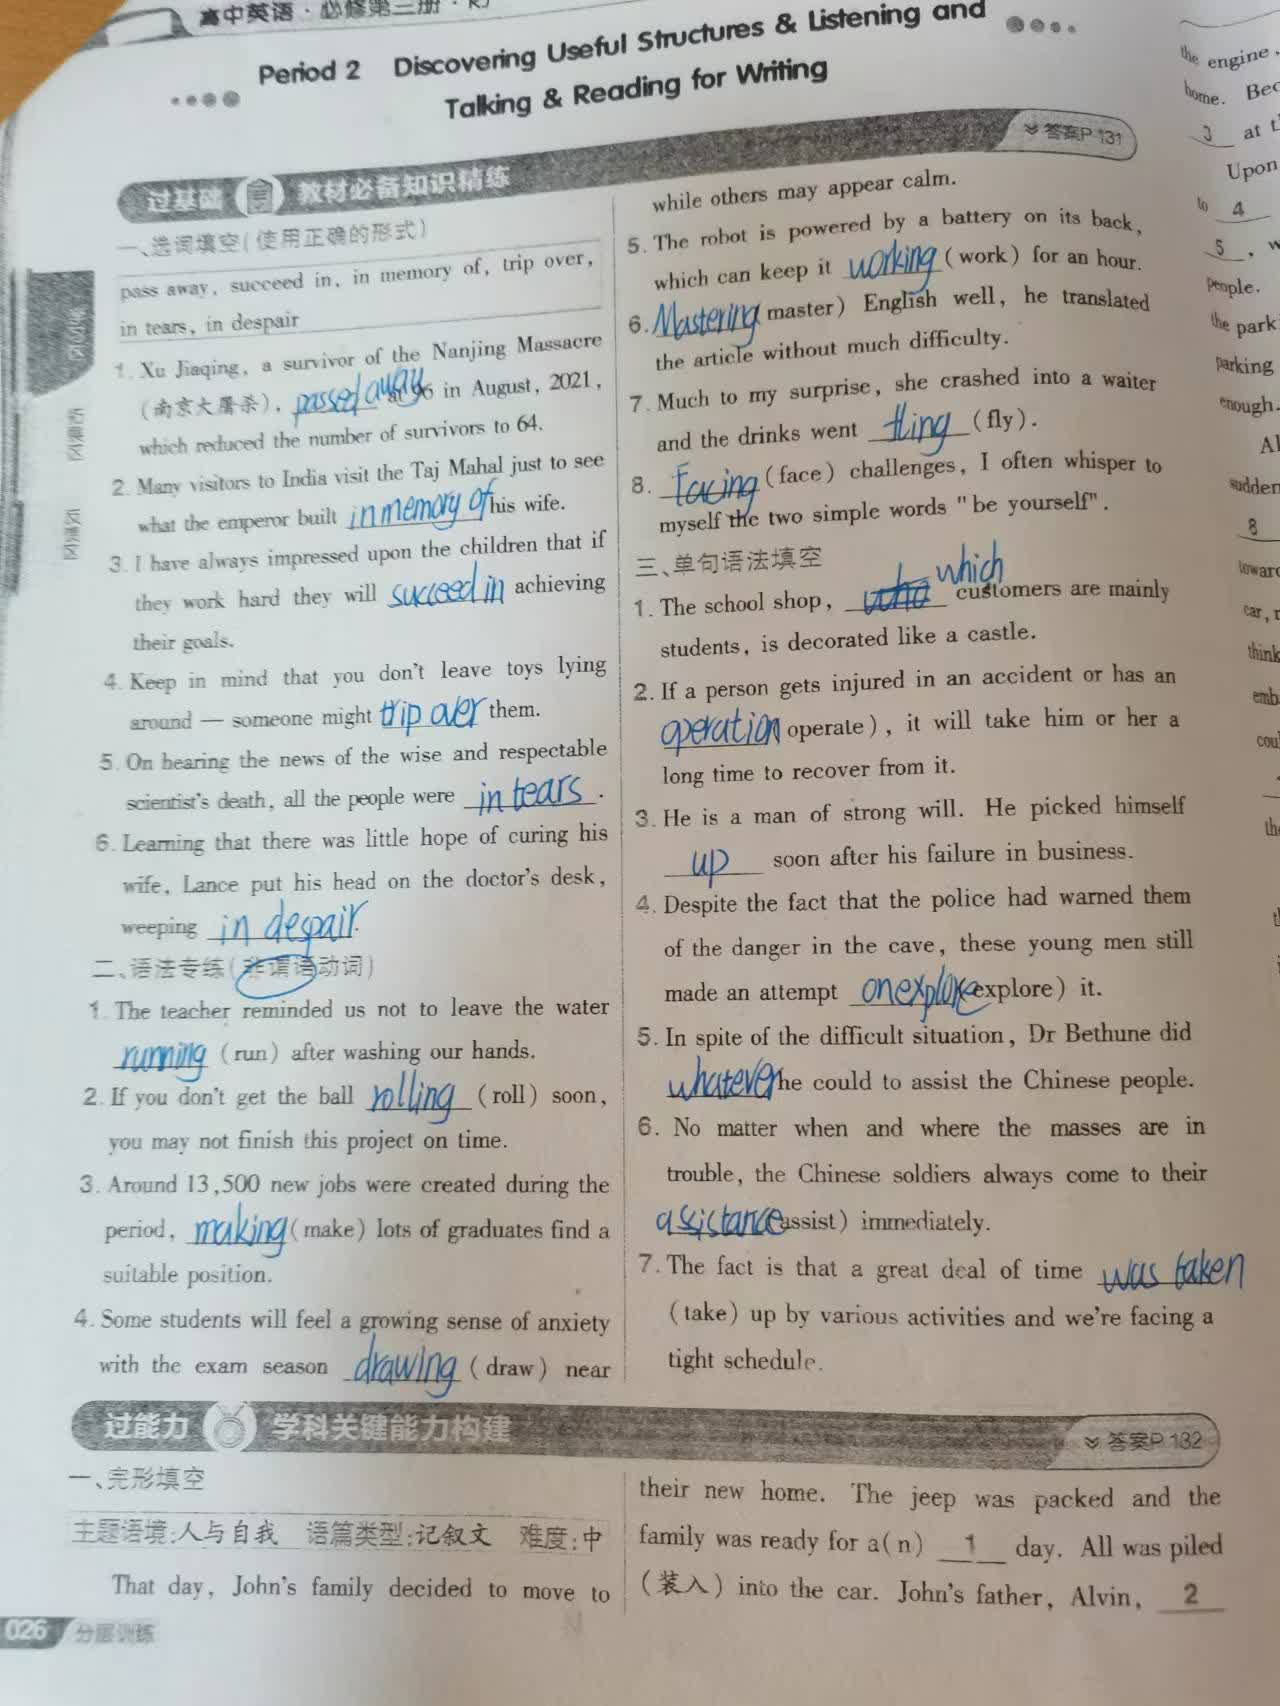 高中英语·必修第三册·RJ
Period 2 Discovering Useful Structures & Listening and
Talking & Reading for Writing
答案P 131
过基础 教材必备知识精练
一、选词填空(使用正确的形式)
pass away, succeed in, in memory of, trip over,
in tears, in despair
1. Xu Jiaqing, a survivor of the Nanjing Massacre
(南京大屠杀), passed away at 96 in August, 2021,
which reduced the number of survivors to 64.
2. Many visitors to India visit the Taj Mahal just to see
what the emperor built in memory of his wife.
3. I have always impressed upon the children that if
they work hard they will succeed in achieving
their goals.
4. Keep in mind that you don't leave toys lying
around — someone might trip over them.
5. On hearing the news of the wise and respectable
scientist's death, all the people were in tears.
6. Learning that there was little hope of curing his
wife, Lance put his head on the doctor's desk,
weeping in despair.
二、语法专练(非谓语动词)
1. The teacher reminded us not to leave the water
running (run) after washing our hands.
2. If you don't get the ball rolling (roll) soon,
you may not finish this project on time.
3. Around 13,500 new jobs were created during the
period, making (make) lots of graduates find a
suitable position.
4. Some students will feel a growing sense of anxiety
with the exam season drawing (draw) near
while others may appear calm.
5. The robot is powered by a battery on its back,
which can keep it working (work) for an hour.
6. Mastering master) English well, he translated
the article without much difficulty.
7. Much to my surprise, she crashed into a waiter
and the drinks went fling (fly).
8. Facing (face) challenges, I often whisper to
myself the two simple words "be yourself".
三、单句语法填空
1. The school shop, which customers are mainly
students, is decorated like a castle.
2. If a person gets injured in an accident or has an
operation operate), it will take him or her a
long time to recover from it.
3. He is a man of strong will. He picked himself
up soon after his failure in business.
4. Despite the fact that the police had warned them
of the danger in the cave, these young men still
made an attempt on explore (explore) it.
5. In spite of the difficult situation, Dr Bethune did
whatever he could to assist the Chinese people.
6. No matter when and where the masses are in
trouble, the Chinese soldiers always come to their
assistance assist) immediately.
7. The fact is that a great deal of time was taken
(take) up by various activities and we're facing a
tight schedule.
过能力 学科关键能力构建
答案P 132
一、完形填空
主题语境:人与自我 语篇类型:记叙文 难度:中
That day, John's family decided to move to
their new home. The jeep was packed and the
family was ready for a(n) 1 day. All was piled
(装入) into the car. John's father, Alvin, 2
026 分层训练
the engine,
home.
3 at
Upon
to 4
5,
people.
the park
parking
enough.
sudden
8
toward
car,
think